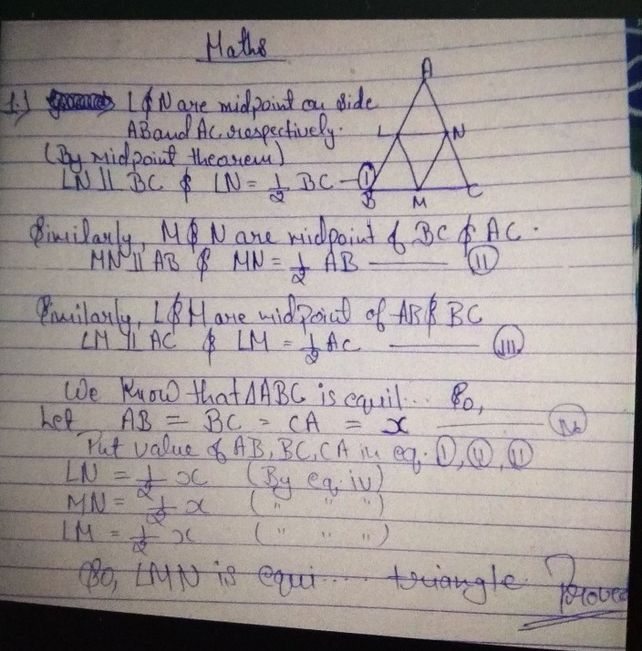 Maths
1.) L & N are midpoint on side
AB and AC respectively.
(By midpoint theorem)
LN || BC & LN = 1/2 BC - I
A
L
N
B
M
C
Similarly, M & N are midpoint of BC & AC.
MN || AB & MN = 1/2 AB - II
Similarly, L & M are midpoint of AB & BC
LM || AC & LM = 1/2 AC - III
We know that ∆ABC is equil... So,
Let AB = BC = CA = x - IV
Put value of AB, BC, CA in eq. I, II, II
LN = 1/2 x (By eq. iv)
MN = 1/2 x ( " " " )
LM = 1/2 x ( " " " )
So, LMN is equi... triangle. Proved